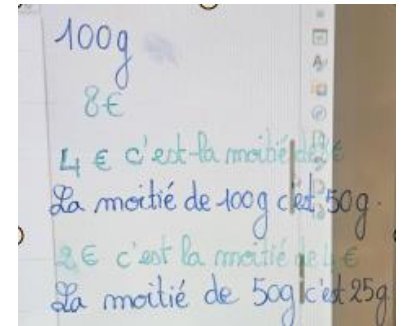 100g
8€
4€ c'est la moitié de 8€
La moitié de 100g c'est 50g.
2€ c'est la moitié de 4€
La moitié de 50g c'est 25g